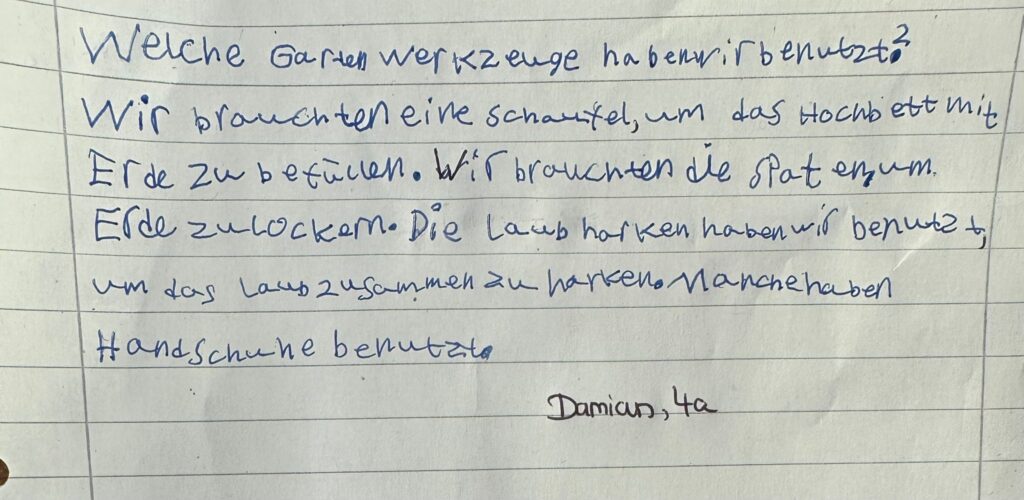 Welche Gartenwerkzeuge haben wir benutzt?
Wir brauchten eine schaufel, um das Hochbett mit
Erde zu befüllen. Wir brauchten die Spaten, um
Erde zu lockern. Die Laubharken haben wir benutzt,
um das Laub zusammen zu harken. Manche haben
Handschuhe benutzt.
Damian, 4a